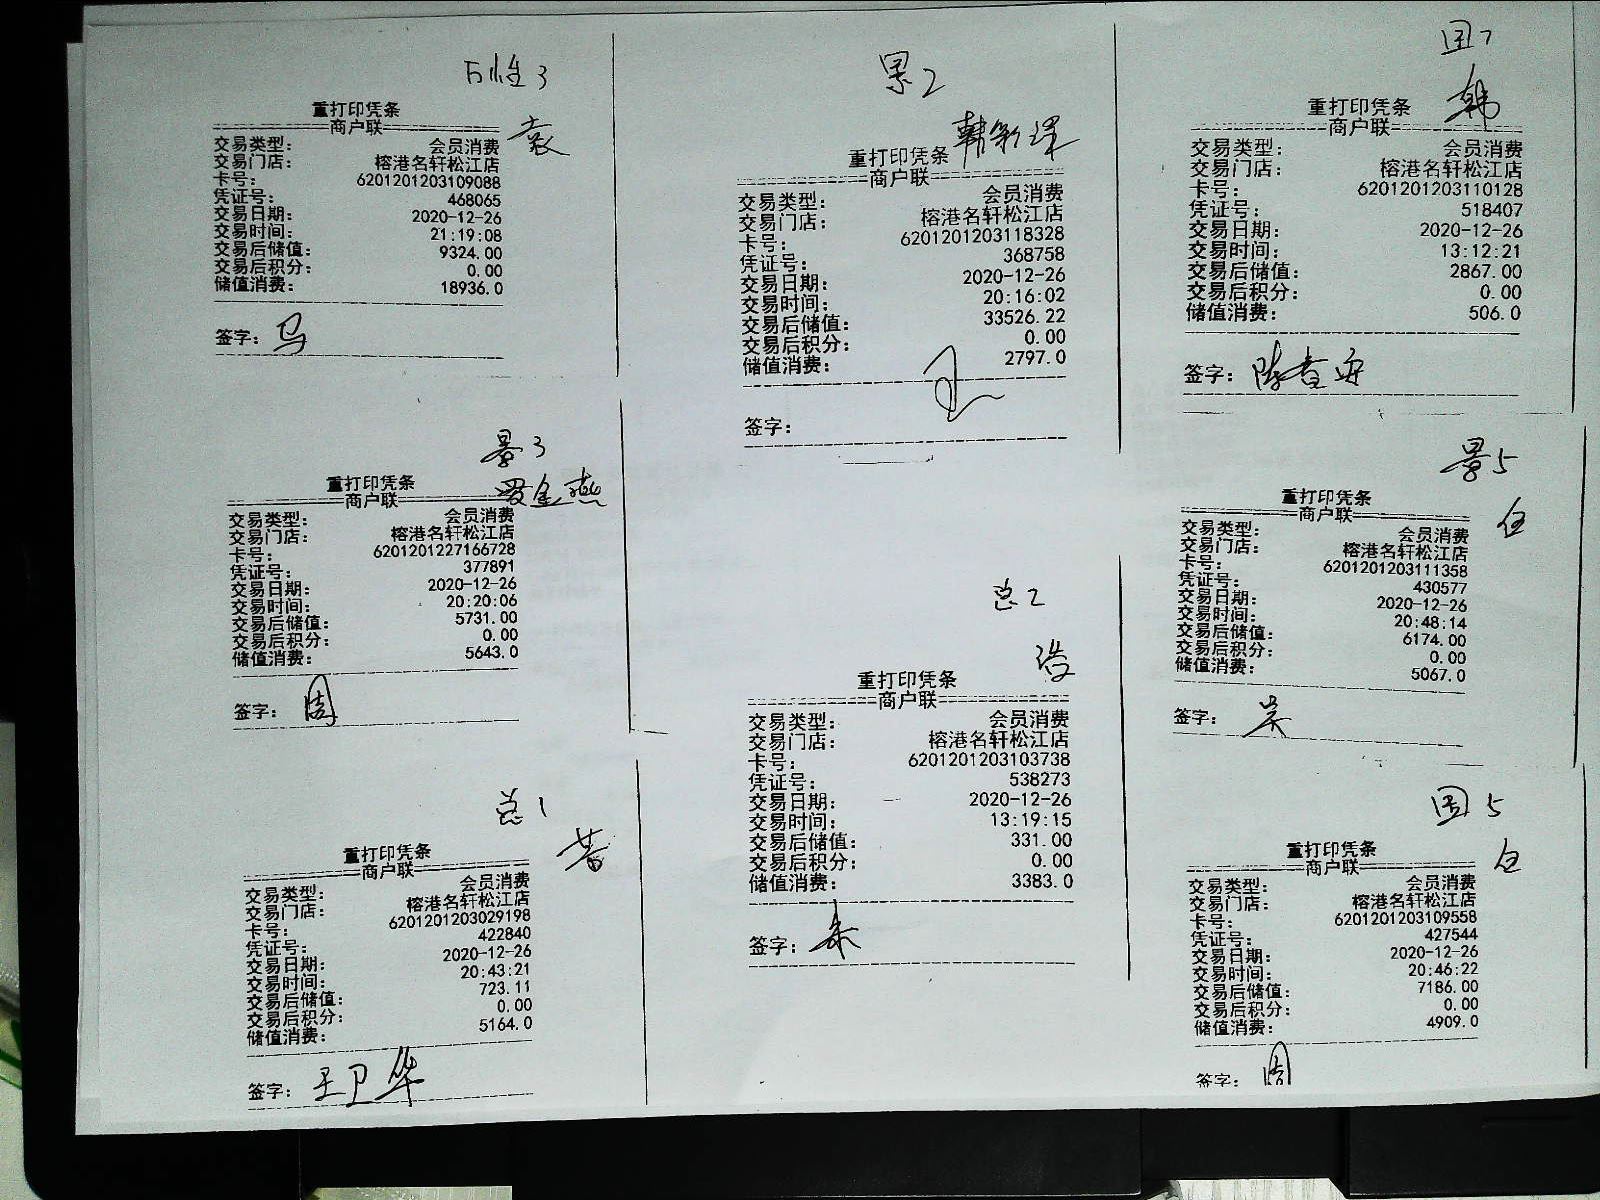 3
重打印凭条
袁
商户联
交易类型: 会员消费
交易门店: 榕港名轩松江店
卡号: 6201201203109088
凭证号: 468065
交易日期: 2020-12-26
交易时间: 21:19:08
交易后储值: 9324.00
交易后积分: 0.00
储值消费: 18936.0
签字: 马
景3
重打印凭条
罗金燕
商户联
交易类型: 会员消费
交易门店: 榕港名轩松江店
卡号: 6201201227166728
凭证号: 377891
交易日期: 2020-12-26
交易时间: 20:20:06
交易后储值: 5731.00
交易后积分: 0.00
储值消费: 5643.0
签字: 周
总1
重打印凭条
商户联
交易类型: 会员消费
交易门店: 榕港名轩松江店
卡号: 6201201203029198
凭证号: 422840
交易日期: 2020-12-26
交易时间: 20:43:21
交易后储值: 723.11
交易后积分: 0.00
储值消费: 5164.0
签字: 王卫华
景2
重打印凭条
商户联
交易类型: 会员消费
交易门店: 榕港名轩松江店
卡号: 6201201203118328
凭证号: 368758
交易日期: 2020-12-26
交易时间: 20:16:02
交易后储值: 33526.22
交易后积分: 0.00
储值消费: 2797.0
签字:
总2
重打印凭条
商户联
交易类型: 会员消费
交易门店: 榕港名轩松江店
卡号: 6201201203103738
凭证号: 538273
交易日期: 2020-12-26
交易时间: 13:19:15
交易后储值: 331.00
交易后积分: 0.00
储值消费: 3383.0
签字: 朱
国7
重打印凭条
韩
商户联
交易类型: 会员消费
交易门店: 榕港名轩松江店
卡号: 6201201203110128
凭证号: 518407
交易日期: 2020-12-26
交易时间: 13:12:21
交易后储值: 2867.00
交易后积分: 0.00
储值消费: 506.0
签字:
景5
重打印凭条
任
商户联
交易类型: 会员消费
交易门店: 榕港名轩松江店
卡号: 6201201203111358
凭证号: 430577
交易日期: 2020-12-26
交易时间: 20:48:14
交易后储值: 6174.00
交易后积分: 0.00
储值消费: 5067.0
签字: 吴
国5
重打印凭条
任
商户联
交易类型: 会员消费
交易门店: 榕港名轩松江店
卡号: 6201201203109558
凭证号: 427544
交易日期: 2020-12-26
交易时间: 20:46:22
交易后储值: 7186.00
交易后积分: 0.00
储值消费: 4909.0
签字: 周